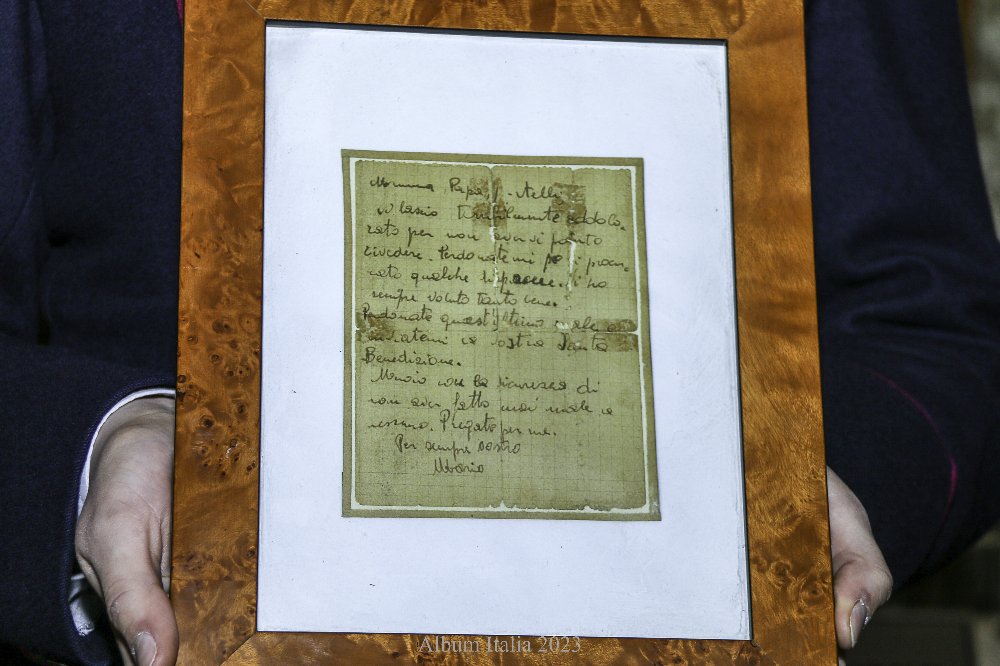 Mamma, Papà, 
vi lascio terribilmente addolo-
rato per non avervi potuto
rivedere. Perdonatemi se vi procu-
rato qualche dispiacere. Vi ho
sempre voluto tanto bene.
Perdonate quest'ultimo male e
inviatemi la vostra Santa
Benedizione.
Muoio con la sicurezza di
non aver fatto mai male a
nessuno. Pregate per me.
Per sempre vostro
Mario
Album Italia 2023